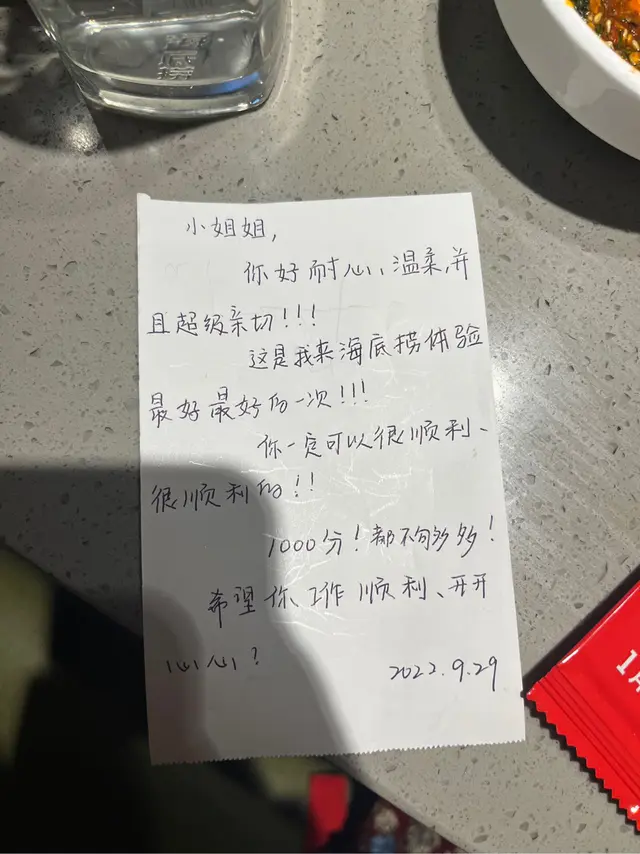 小姐姐,
你好耐心、温柔,并
且超级亲切!!!
这是我来海底捞体验
最好最好的一次!!!
你一定可以很顺利、
很顺利的!!
1000分!都不够多!
希望你工作顺利、开开
心心?
2022.9.29